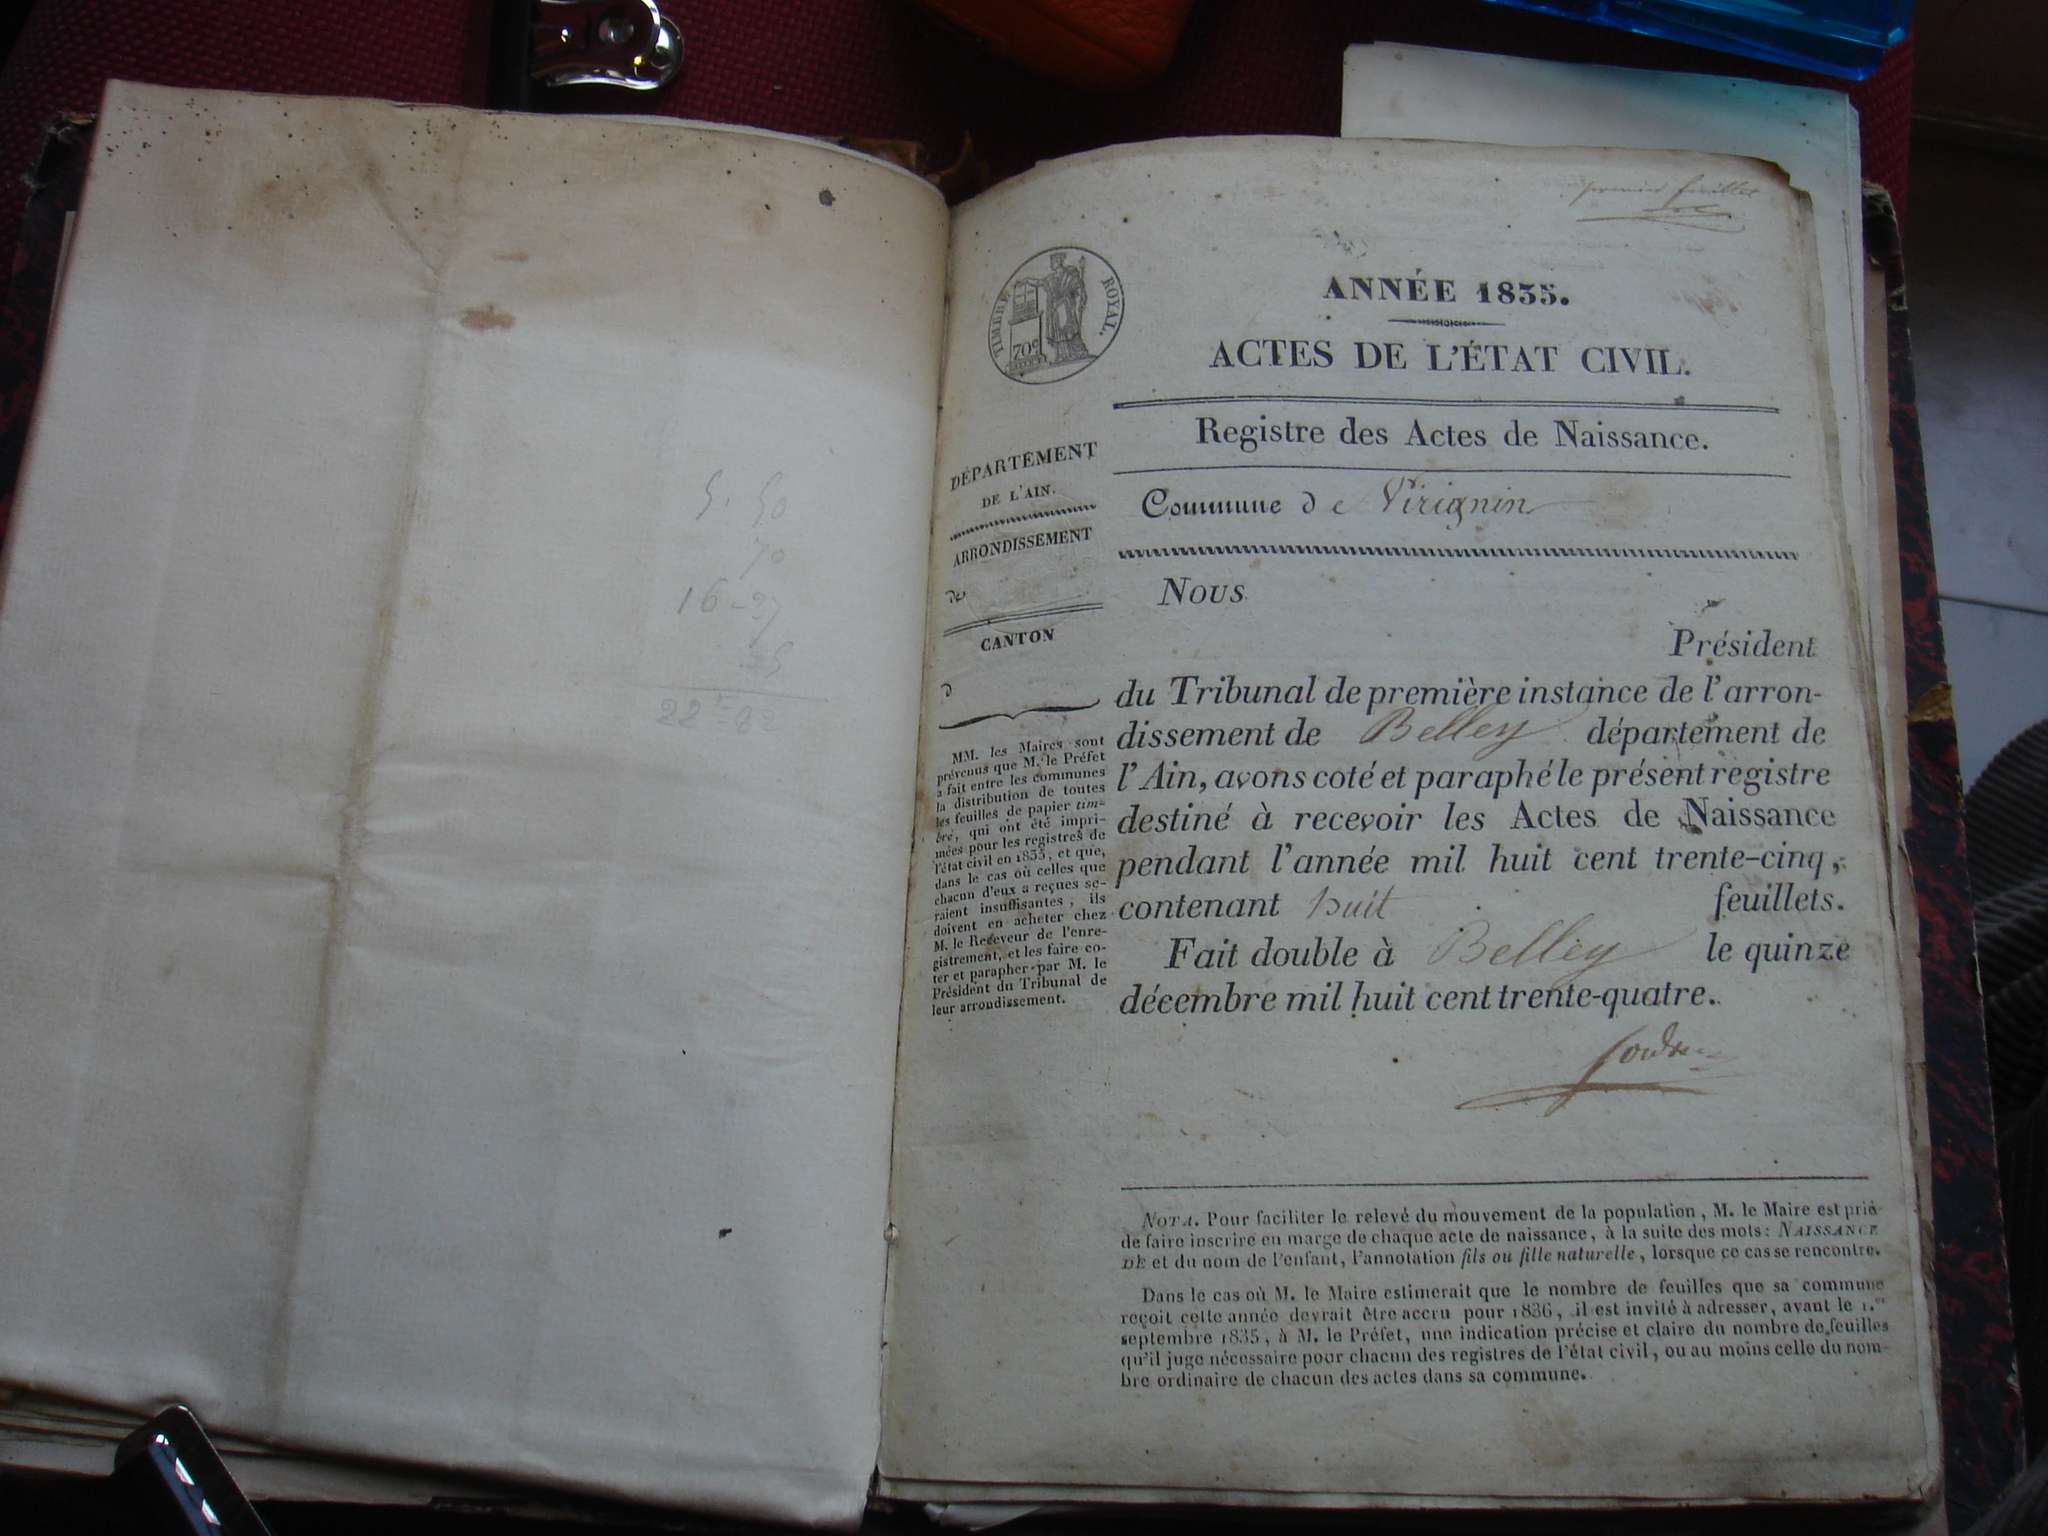 5. 50
70
16-27
22-62
premier feuillet
TIMBRE ROYAL.
70c
ANNÉE 1835.
ACTES DE L'ÉTAT CIVIL.
Registre des Actes de Naissance.
Commune de Virignin
DÉPARTEMENT
DE L'AIN.
ARRONDISSEMENT
de
CANTON
d
MM. les Maires sont
prévenus que M. le Préfet
a fait entre les communes
la distribution de toutes
les feuilles de papier tim-
bré, qui ont été impri-
mées pour les registres de
l'état civil en 1835, et que,
dans le cas où celles que
chacun d'eux a reçues se-
raient insuffisantes, ils
doivent en acheter chez
M. le Receveur de l'enre-
gistrement, et les faire co-
ter et parapher par M. le
Président du Tribunal de
leur arrondissement.
Nous
Président
du Tribunal de première instance de l'arron-
dissement de Belley département de
l'Ain, avons coté et paraphé le présent registre
destiné à recevoir les Actes de Naissance
pendant l'année mil huit cent trente-cinq,
contenant huit feuillets.
Fait double à Belley le quinze
décembre mil huit cent trente-quatre.
NOTA. Pour faciliter le relevé du mouvement de la population, M. le Maire est prié
de faire inscrire en marge de chaque acte de naissance, à la suite des mots: NAISSANCE
DE et du nom de l'enfant, l'annotation fils ou fille naturelle, lorsque ce cas se rencontre.
Dans le cas où M. le Maire estimerait que le nombre de feuilles que sa commune
reçoit cette année devrait être accru pour 1836, il est invité à adresser, avant le 1.er
septembre 1835, à M. le Préfet, une indication précise et claire du nombre de feuilles
qu'il juge nécessaire pour chacun des registres de l'état civil, ou au moins celle du nom-
bre ordinaire de chacun des actes dans sa commune.